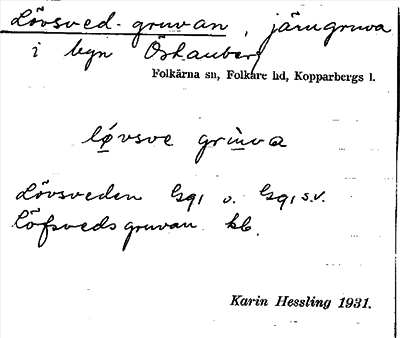 Lövsved-gruvan, järngruva
i byn Östanberg
Folkärna sn, Folkare hd, Kopparbergs l.
lǫvsve grùva
Lövsveden Gq, o. Gq, s.v.
Löfsveds gruvan kb.
Karin Hessling 1931.